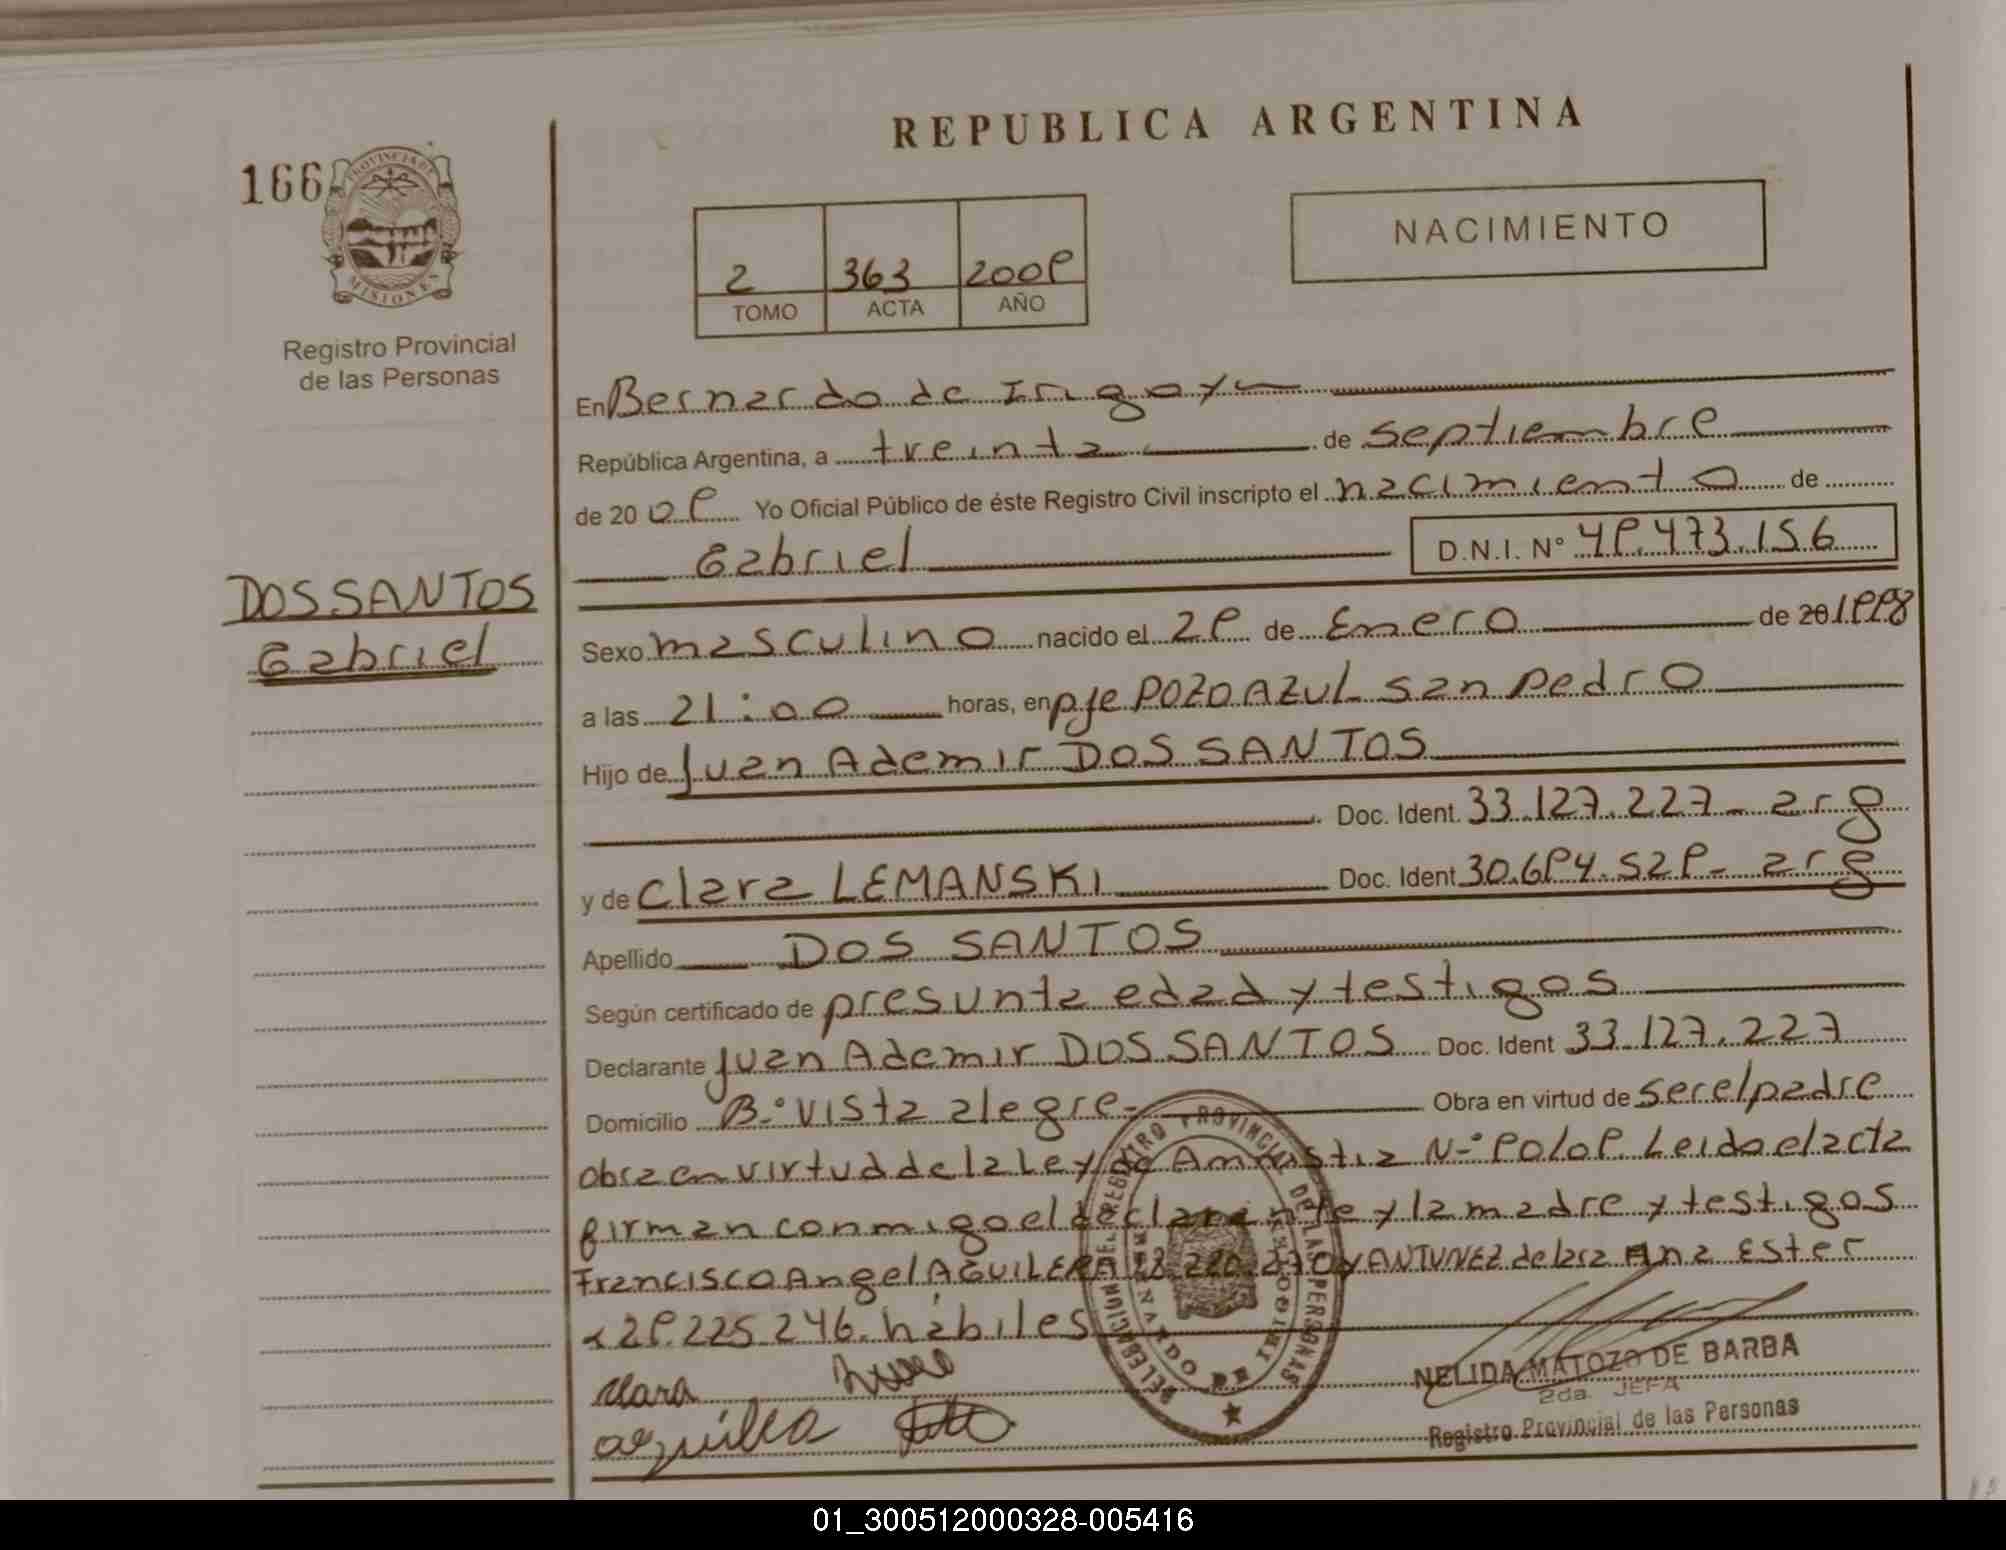 REPUBLICA ARGENTINA
166
PROVINCIA DE
MISIONES
NACIMIENTO
2 363 2009
TOMO ACTA AÑO
Registro Provincial
de las Personas
En Bernardo de Irigoyen
República Argentina, a treinta de septiembre
de 20 09 Yo Oficial Público de éste Registro Civil inscripto el nacimiento de
Gabriel D.N.I. N° 49.473.156
DOS SANTOS
Gabriel
Sexo masculino nacido el 29 de Enero de 20 1998
a las 21:00 horas, en pje POZO AZUL san pedro
Hijo de Juan Ademir DOS SANTOS
Doc. Ident. 33.127.227- arg
y de Clara LEMANSKI Doc. Ident 30.694.529- arg
Apellido DOS SANTOS
Según certificado de presunta edad y testigos
Declarante Juan Ademir DOS SANTOS Doc. Ident 33.127.227
Domicilio B.° Vista alegre- Obra en virtud de ser el padre
obra en virtud de la Ley de Amnistia N-° 90/09. Leido el acta
firman conmigo el declarante y la madre y testigos
Francisco Angel AGUILERA y ANTUNEZ de lara Ana Ester
29.225.246. hábiles
Clara
NELIDA MATOZO DE BARBA
2da. JEFA
Registro Provincial de las Personas
DELEGACION DEL REGISTRO PROVINCIAL DE LAS PERSONAS
BERNARDO DE IRIGOYEN
01_300512000328-005416